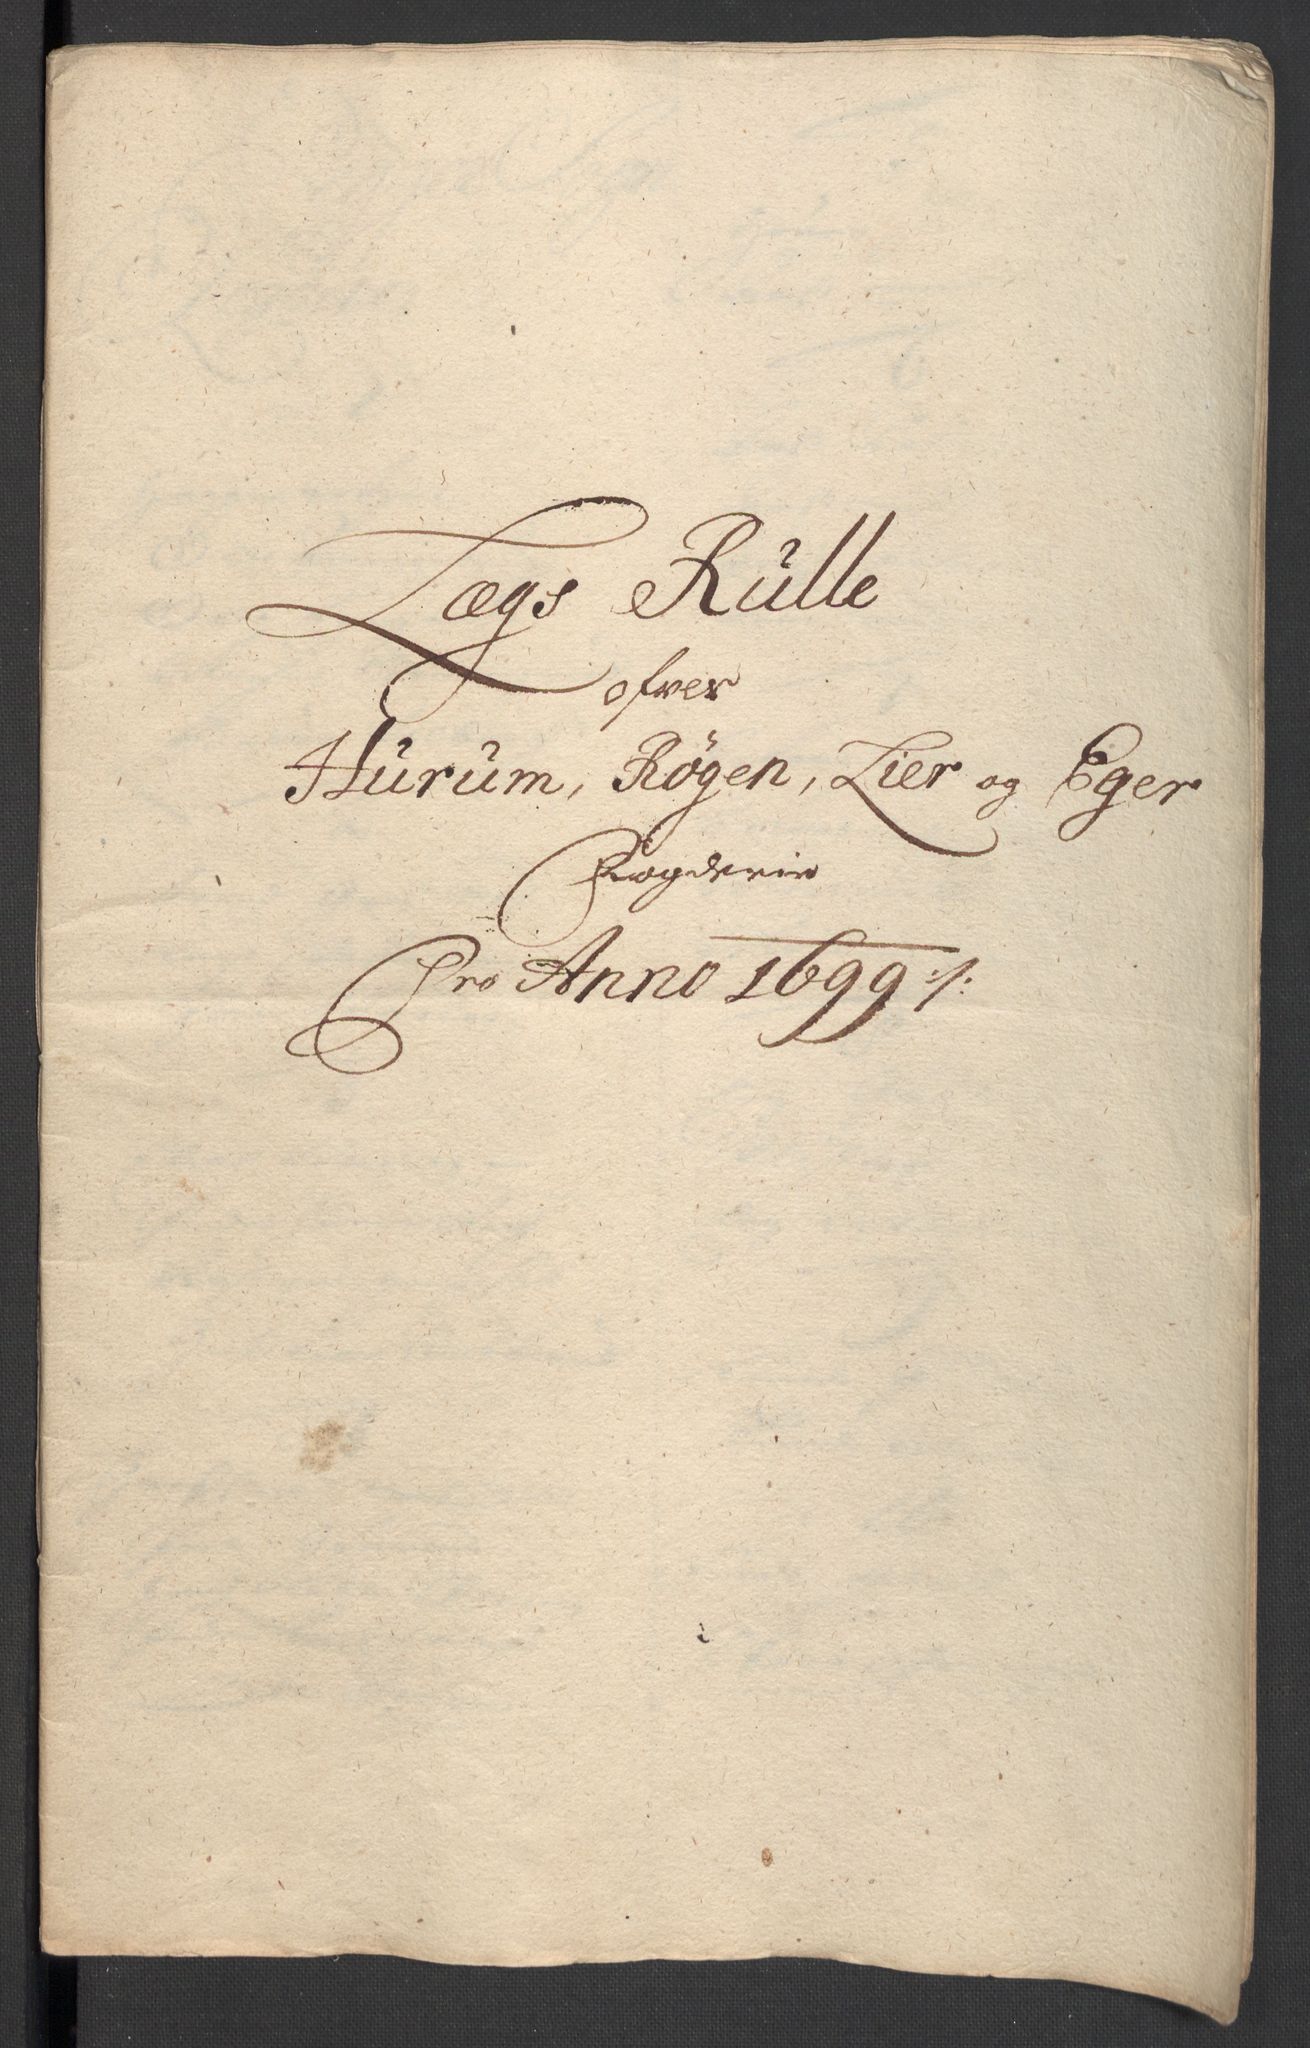 Lægs Rülle
ofver
Hürüm, Røgen, Lier og Eger
Fogderie
Pro Anno 1699 ./.